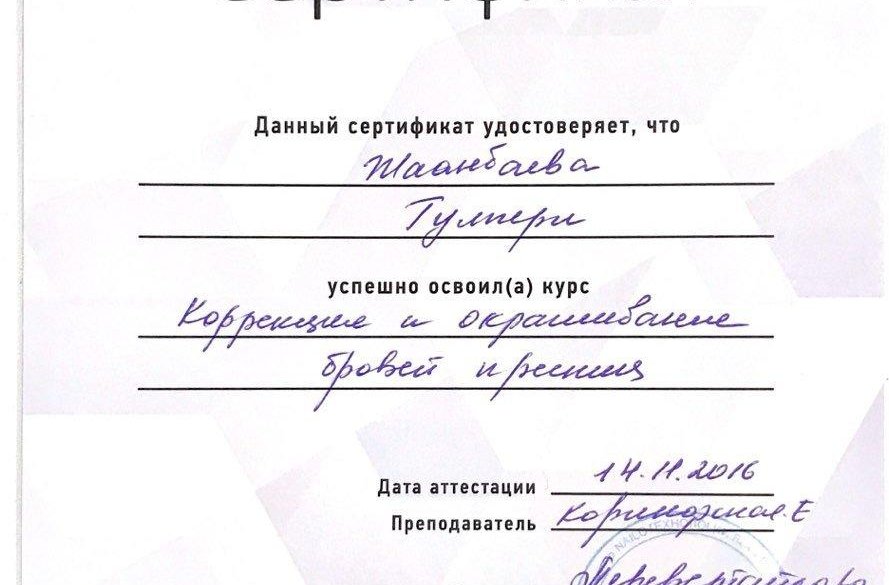 Данный сертификат удостоверяет, что
Жаанбаева
Гулпери
успешно освоил(а) курс
Коррекция и окрашивание
бровей и ресниц
Дата аттестации 14.11.2016
Преподаватель